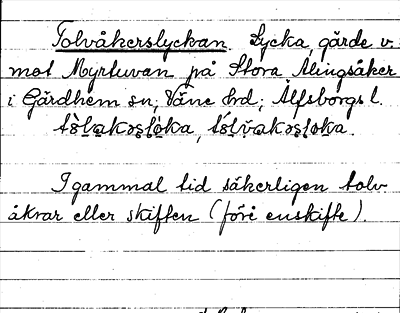 Tolvåkerslyckan. Lycka, gärde v.
mot Myrtuvan på Stora Alingsåker
i Gärdhem sn, Väne hd; Älfsborgs l.
I gammal tid säkerligen tolv
åkrar eller skiften (före enskifte).